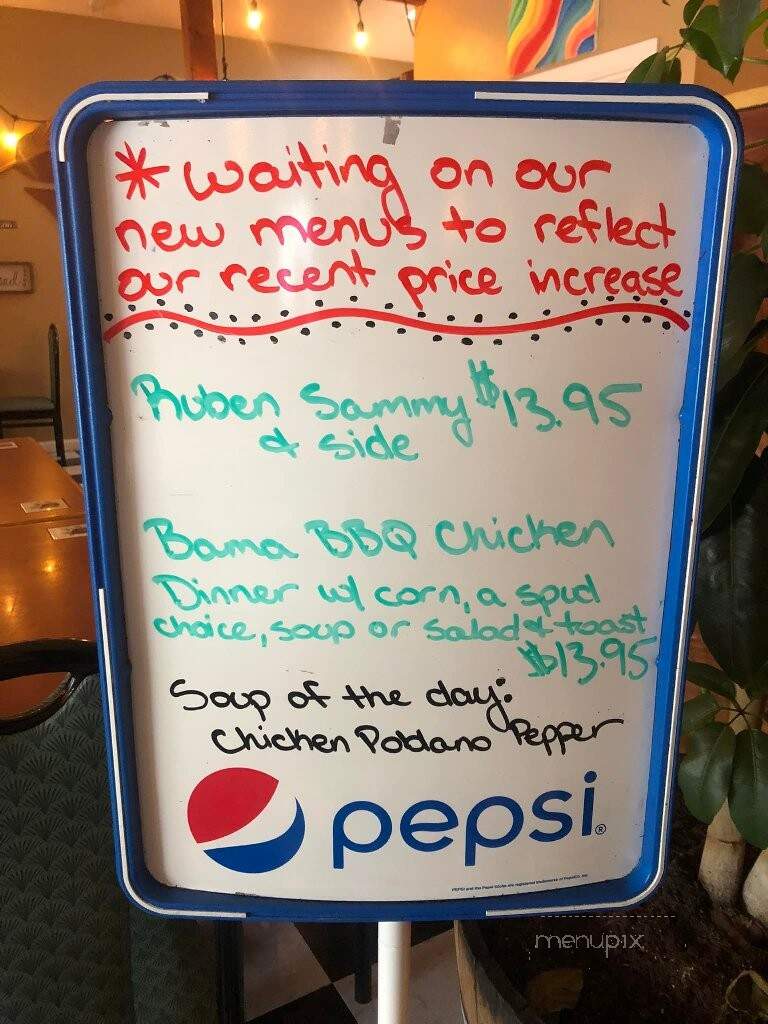 * waiting on our
new menu's to reflect
our recent price increase
Ruben Sammy $13.95
& side
Bama BBQ Chicken
Dinner w/ corn, a spud
choice, soup or salad & toast
$13.95
Soup of the day:
Chicken Poblano Pepper
pepsi®
menupix